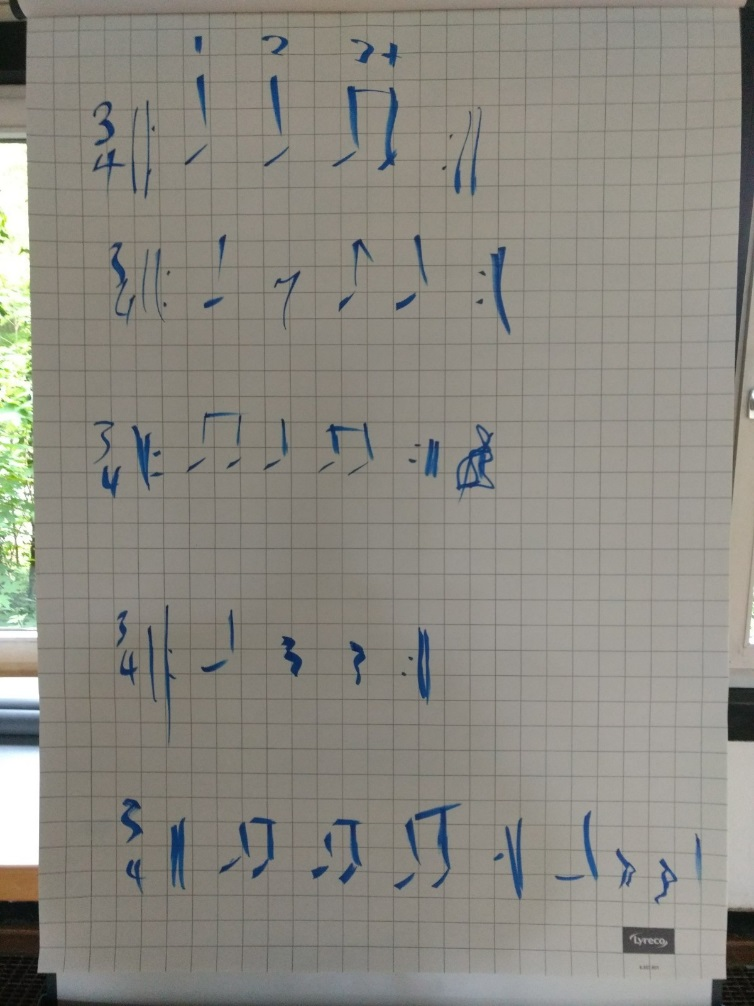 1 2 3+
3/4 ‖: ♩ ♩ ♫ :‖
3/4 ‖: ♩ 𝄾 ♪ ♩ :‖
3/4 ‖: ♫ ♩ ♫ :‖
3/4 ‖: ♩ 𝄽 𝄽 :‖
3/4 ‖ ♫ ♫ ♫ :‖ ♩ 𝄽 𝄽 |
Lyreco